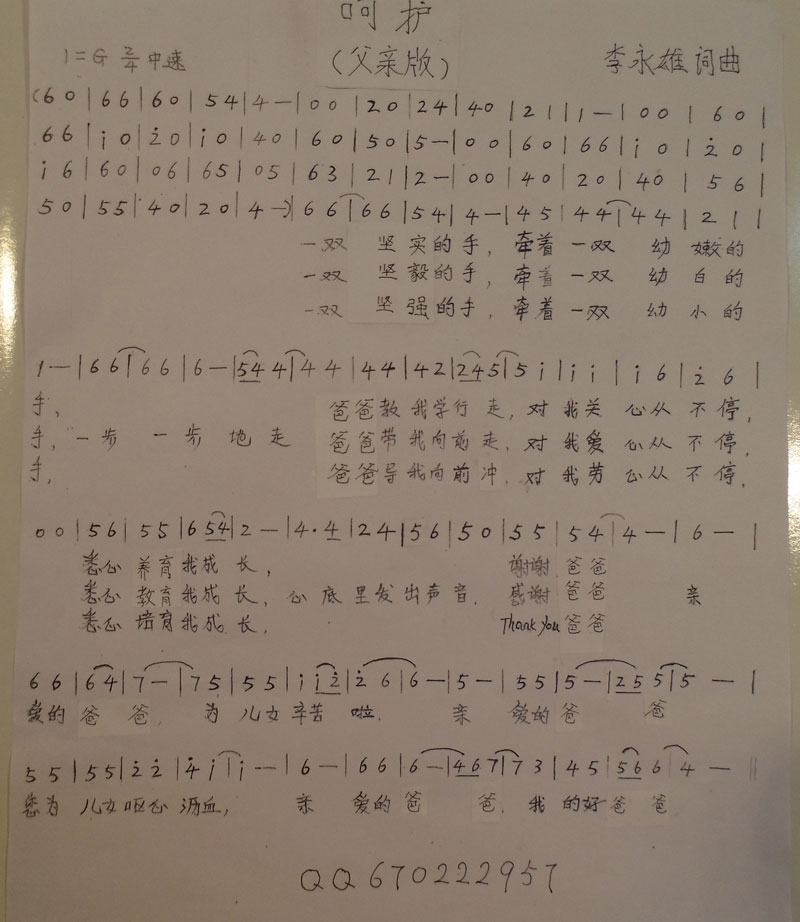 呵护
1=G 2/4 中速 （父亲版） 李永雄 词曲
(6 0 | 6 6 | 6 0 | 5 4 | 4 — | 0 0 | 2 0 | 2 4 | 4 0 | 2 1 | 1 — | 0 0 | 6 0 |
6 6 | i 0 | 2̇ 0 | i 0 | 4 0 | 6 0 | 5 0 | 5 — | 0 0 | 6 0 | 6 6 | i 0 | 2̇ 0 |
i 6 | 6 0 | 0 6 | 6 5 | 0 5 | 6 3 | 2 1 | 2 — | 0 0 | 4 0 | 2 0 | 4 0 | 5 6 |
5 0 | 5 5 | 4 0 | 2 0 | 4 —) | 6 6 | 6 6 | 5 4 | 4 — | 4 5 | 4 4 | 4 4 | 2 1 |
一双 坚实的手，牵着一双 幼 嫩的
一双 坚毅的手，牵着一双 幼 白的
一双 坚强的手，牵着一双 幼 小的
1 — | 6 6 | 6 6 | 6 — | 5 4 4 | 4 4 | 4 4 | 4 2 | 2 4 5 | 5 i | i i | i 6 | 2̇ 6 |
手， 爸爸教我学行走，对我关 心从 不停，
手，一步 一步地走 爸爸带我向前走，对我爱 心从 不停，
手， 爸爸导我向前冲，对我劳 心从 不停，
0 0 | 5 6 | 5 5 | 6 5 4 | 2 — | 4 . 4 | 2 4 | 5 6 | 5 0 | 5 5 | 5 4 | 4 — | 6 — |
悉心 养育我成 长， 谢谢 爸爸
悉心 教育我成 长，心底里发出声音. 感谢 爸爸 亲
悉心 培育我成 长， Thank you 爸爸
6 6 | 6 4 | 7 — | 7 5 | 5 5 | i i 2̇ | 2̇ 6 | 6 — | 5 — | 5 5 | 5 — | 2 5 5 | 5 — |
爱的 爸 爸， 为 儿女辛苦 啦， 亲 爱的爸 爸
5 5 | 5 5 | 2̇ 2̇ | 4̇ i | i — | 6 — | 6 6 | 6 — | 4 6 7 | 7 3 | 4 5 | 5 6 6 | 4 — ||
您为 儿女呕心 沥血， 亲 爱的爸 爸，我 的好爸 爸
QQ670222957